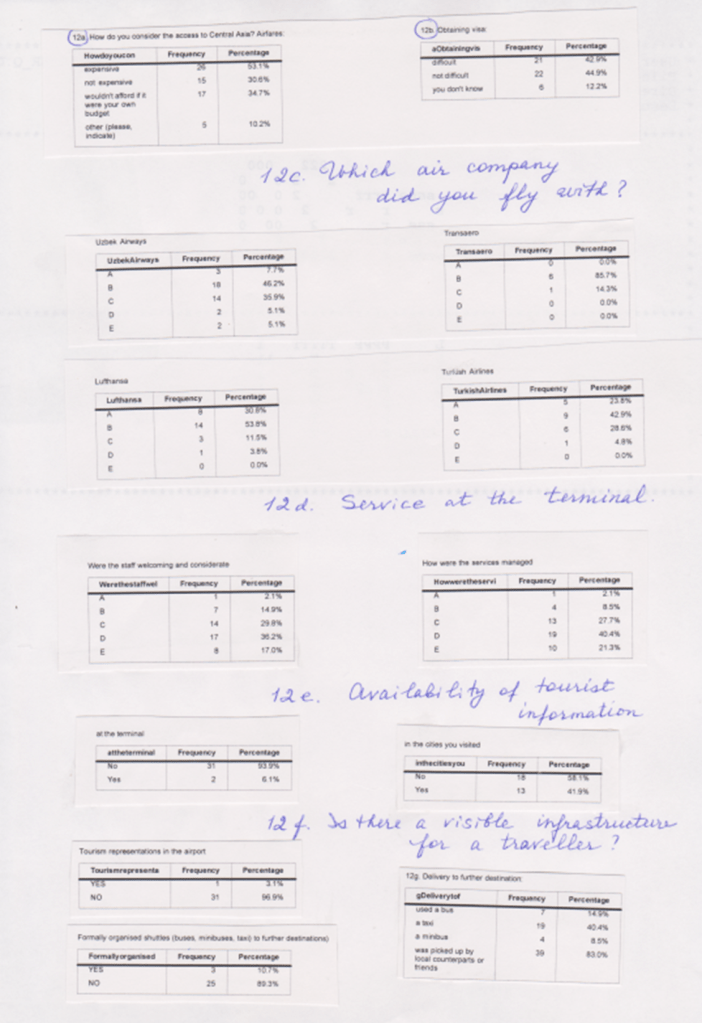 12a. How do you consider the access to Central Asia? Airfares:
Howdoyoucon Frequency Percentage
expensive 26 53.1%
not expensive 15 30.6%
wouldn't afford if it 17 34.7%
were your own
budget
other (please, 5 10.2%
indicate)
12b. Obtaining visa:
aObtainingvis Frequency Percentage
difficult 21 42.9%
not difficult 22 44.9%
you don't know 6 12.2%
12c. Which air company
did you fly with?
Uzbek Airways
UzbekAirways Frequency Percentage
A 3 7.7%
B 18 46.2%
C 14 35.9%
D 2 5.1%
E 2 5.1%
Transaero
Transaero Frequency Percentage
A 0 0.0%
B 6 85.7%
C 1 14.3%
D 0 0.0%
E 0 0.0%
Lufthansa
Lufthansa Frequency Percentage
A 8 30.8%
B 14 53.8%
C 3 11.5%
D 1 3.8%
E 0 0.0%
Turkish Airlines
TurkishAirlines Frequency Percentage
A 5 23.8%
B 9 42.9%
C 6 28.6%
D 1 4.8%
E 0 0.0%
12d. Service at the terminal.
Were the staff welcoming and considerate
Werethestaffwel Frequency Percentage
A 1 2.1%
B 7 14.9%
C 14 29.8%
D 17 36.2%
E 8 17.0%
How were the services managed
Howweretheservi Frequency Percentage
A 1 2.1%
B 4 8.5%
C 13 27.7%
D 19 40.4%
E 10 21.3%
12e. Availability of tourist
information
at the terminal
attheterminal Frequency Percentage
No 31 93.9%
Yes 2 6.1%
in the cities you visited
inthecitiesyou Frequency Percentage
No 18 58.1%
Yes 13 41.9%
12f. Is there a visible infrastructure
for a traveller?
Tourism representations in the airport
Tourismrepresenta Frequency Percentage
YES 1 3.1%
NO 31 96.9%
Formally organised shuttles (buses, minibuses, taxi) to further destinations)
Formallyorganised Frequency Percentage
YES 3 10.7%
NO 25 89.3%
12g. Delivery to further destination:
gDeliverytof Frequency Percentage
used a bus 7 14.9%
a taxi 19 40.4%
a minibus 4 8.5%
was picked up by 39 83.0%
local counterparts or
friends